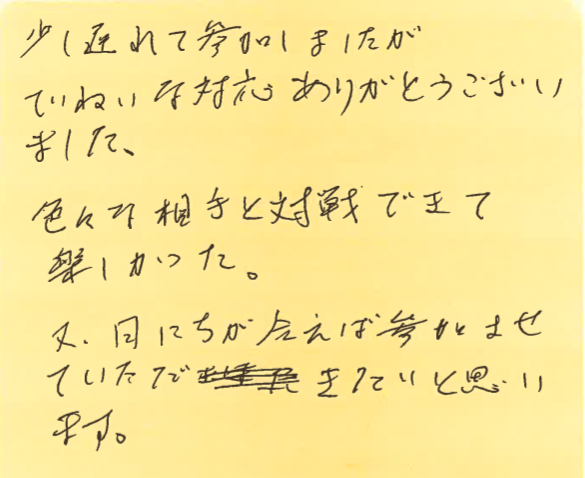 少し遅れて参加しましたが
ていねいな対応ありがとうござい
ました、
色々な相手と対戦できて
楽しかった。
又、日にちが合えば参加させ
ていただきたいと思い
ます。